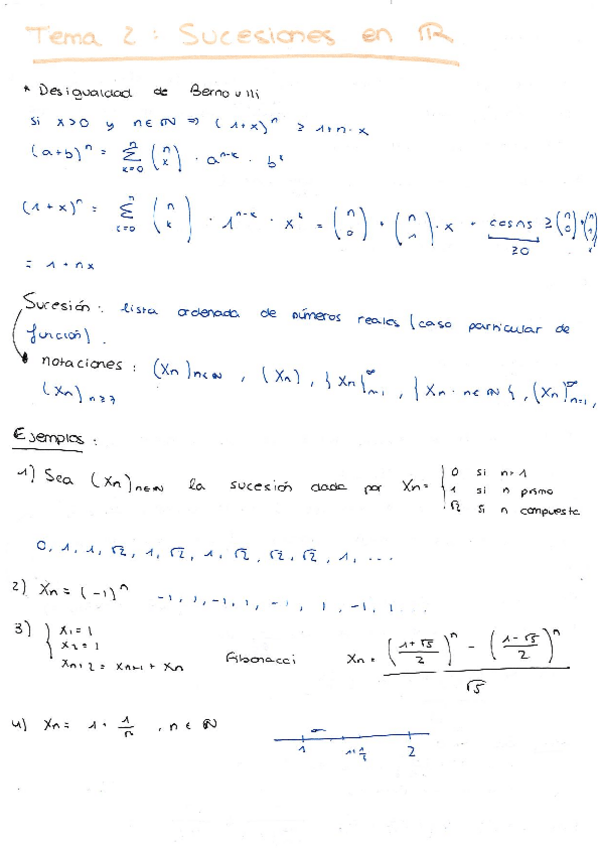 Tema 2: Sucesiones en ℝ
* Desigualdad de Bernoulli
si x>0 y n∈ℕ ⇒ (1+x)^n ≥ 1+n·x
(a+b)^n = Σ_{k=0}^{n} (n k) · a^{n-k} · b^k
(1+x)^n = Σ_{k=0}^{n} (n k) · 1^{n-k} · x^k = (n 0) + (n 1)·x + cosas ≥ (n 0) + (n 1)
≥0
= 1+nx
Sucesión: lista ordenada de números reales (caso particular de
función).
notaciones: (Xn)n∈ℕ, (Xn), {Xn}_{n=1}^∞, {Xn · n∈ℕ}, (Xn)_{n=1}^∞,
(Xn)n≥7
Ejemplos:
1) Sea (Xn)n∈ℕ la sucesión dada por Xn = { 0 si n=1
1 si n primo
√2 si n compuesto
0, 1, 1, √2, 1, √2, 1, √2, √2, √2, 1, ...
2) Xn = (-1)^n -1, 1, -1, 1, -1, 1, -1, 1 ...
3) { X1 = 1
X2 = 1
Xn+2 = Xn+1 + Xn Fibonacci Xn = (((1+√5)/2)^n - ((1-√5)/2)^n)/√5
4) Xn = 1 + 1/n, n∈ℕ
1 2